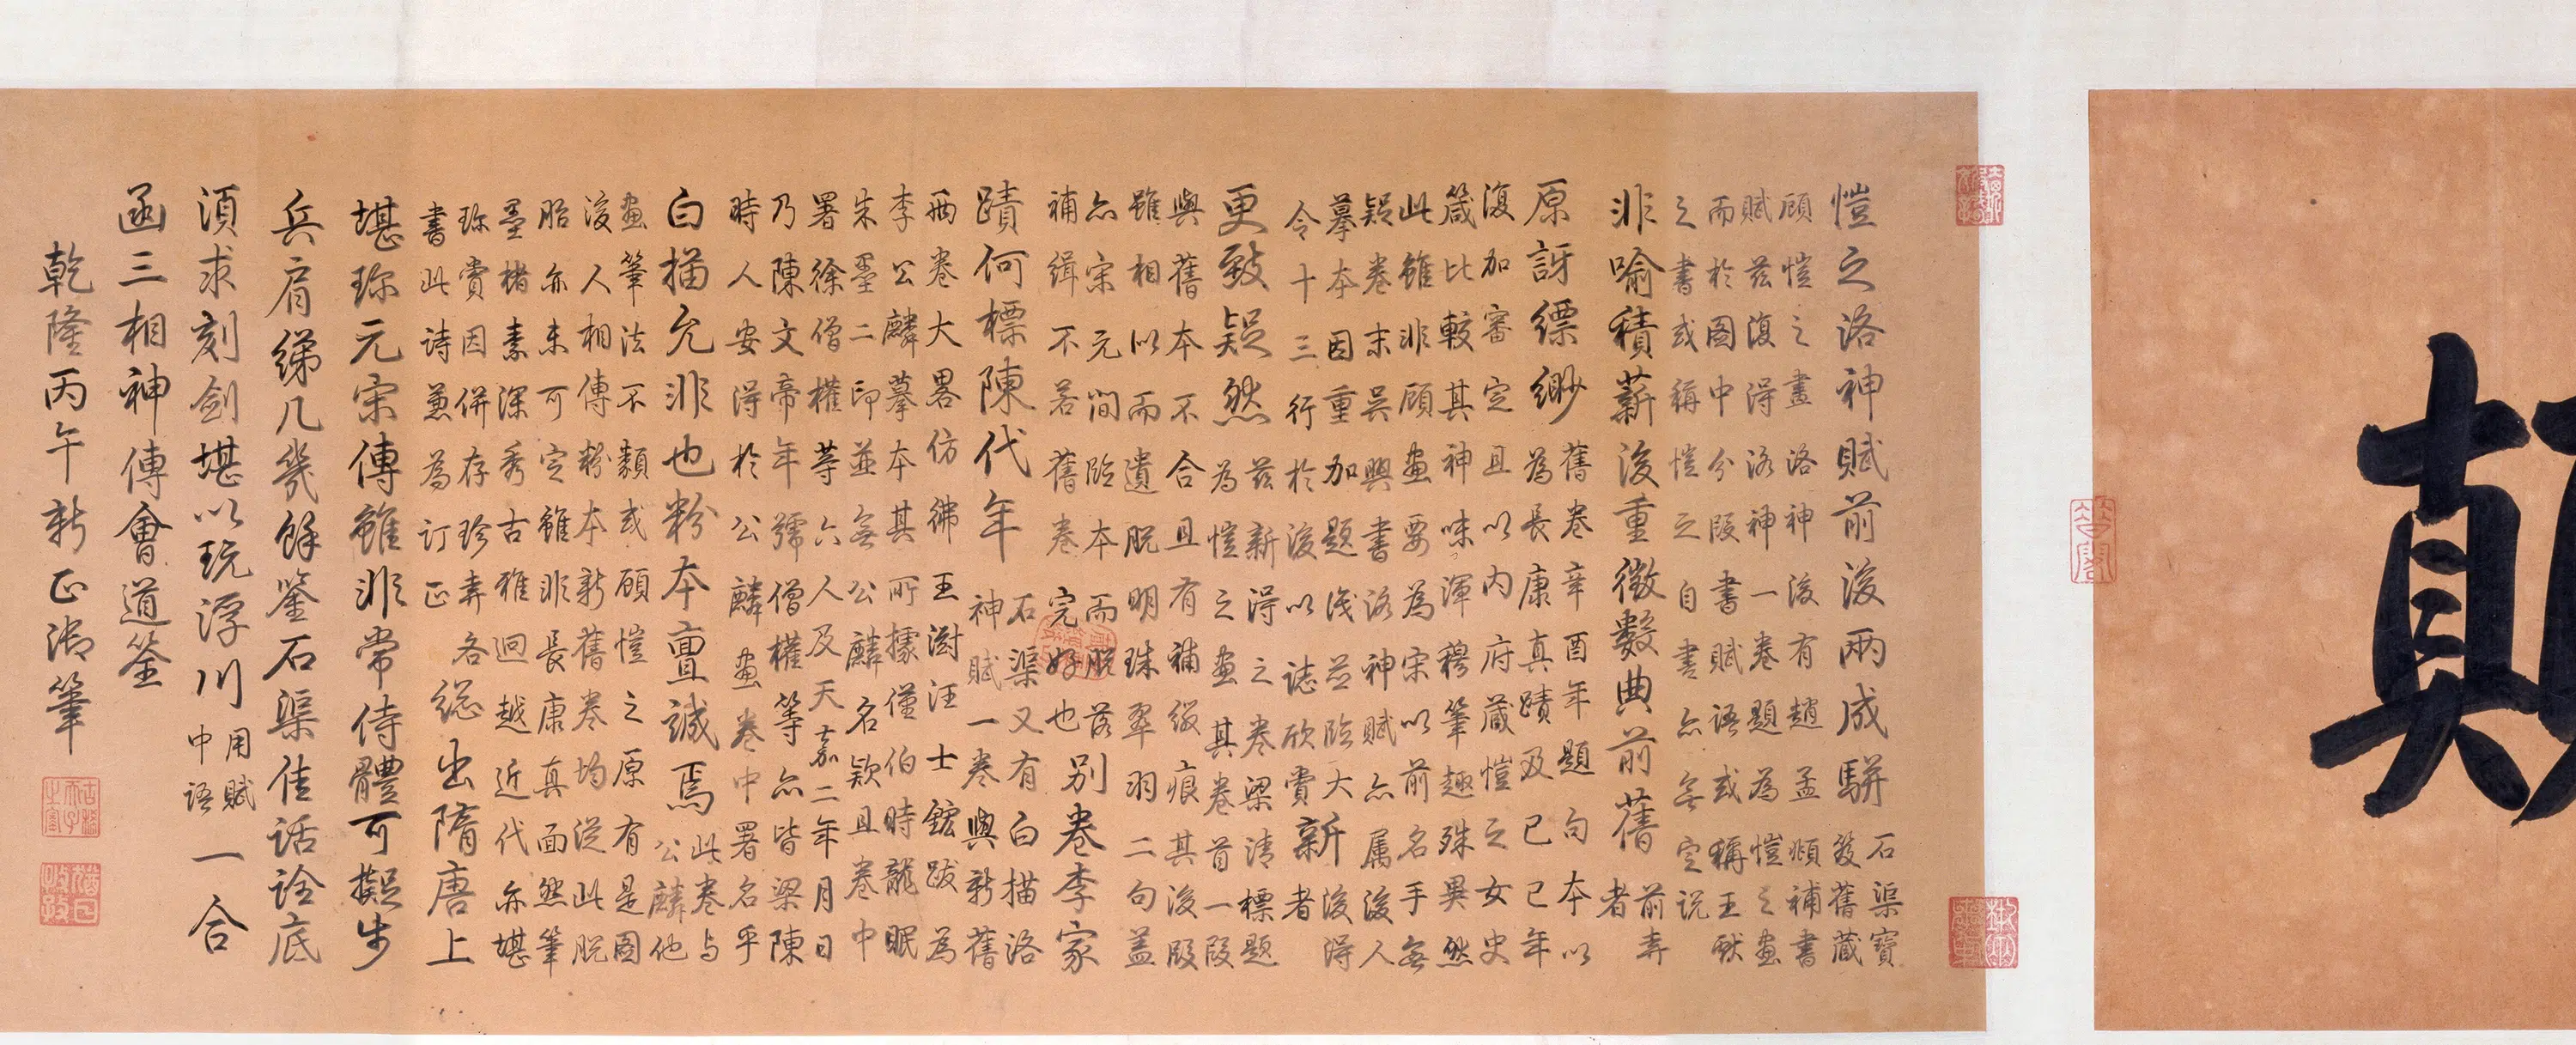 顛
愷之洛神賦前後兩成駢
石渠寶
笈舊藏
顧愷之畫洛神後有趙孟頫補書
賦茲復得洛神一卷題為愷之畫
而於圖中分段書賦語或稱王獻
之書或稱愷之自書亦無定説
非喻積薪後重徵數典前舊
前弆
者
原訝縹緲
舊卷辛酉年題句本以
為長康真蹟及已巳年
復加審定且以内府藏愷之女史
箴比較其神味渾穆筆趣殊異然
此雖非顧畫要為宋以前名手無
疑卷末吳興書洛神賦亦属後人
摹本因重加題識並臨大
令十三行於後以誌欣賞
新
後得
者
更致疑然
茲新得之卷梁清標題
為愷之畫其卷首一段
與舊本不合且有補綴痕其後段
雖相似而遺脱明珠翠羽二句蓋
亦宋元間臨本而脱落
補緝不若舊卷完好也
別卷李家
蹟何標陳代年
石渠又有白描洛
神賦一卷與新舊
兩卷大畧仿彿王澍汪士鋐跋為
李公麟摹本其所據僅伯時龍眠
朱墨二印並無公麟名款且卷中
署徐僧權等六人及天嘉二年月日
乃陳文帝年號僧權等亦皆梁陳
時人安得於公麟畫卷中署名乎
白描允非也粉本亶誠焉
此卷与
公麟他
畫筆法不類或顧愷之原有是圖
後人相傳粉本新舊卷均從此脱
胎亦未可定雖非長康真面然筆
墨楮素深秀古雅迥越近代亦堪
珎賞因併存珍弆各
書此詩兼為訂正
總出隋唐上
堪珎元宋傳雖非常侍體可擬步
兵肩綈几幾餘鑒石渠佳話詮底
須求刻劍堪以玩浮川
用賦
中語
一合
函三相神傳會道筌
乾隆丙午新正御筆
古稀天子之寶
猶日孜孜